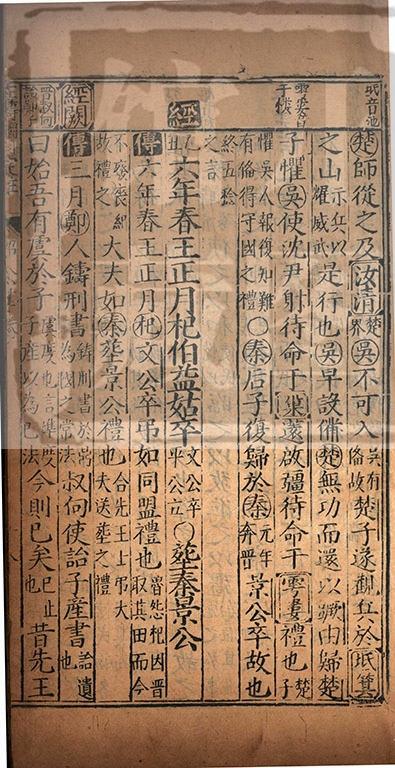 坻音池
楚師從之及汝清楚界吳不可入吳有備故楚子遂觀兵於坻箕
之山示兵以耀威武是行也吳早設備楚無功而還以蹶由歸楚
子懼吳使沈尹射待命于巢薳啟疆待命于雩婁禮也楚子
懼吳人報復知難有備得守國之禮○秦后子復歸於秦元年奔晉景公卒故也
終五稔之言
經六年春王正月杞伯益姑卒文公卒平公立○葬秦景公
傳六年春王正月杞文公卒弔如同盟禮也魯怨杞因晉取其田而今
不廢喪紀故禮之大夫如秦葬景公禮也合先王士弔大夫送葬之禮
經闕
傳三月鄭人鑄刑書鑄刑書於鼎以為國之常法叔向使詒子產書詒遺也
曰始吾有虞於子虞度也言準度子產以為己法今則已矣已止也昔先王